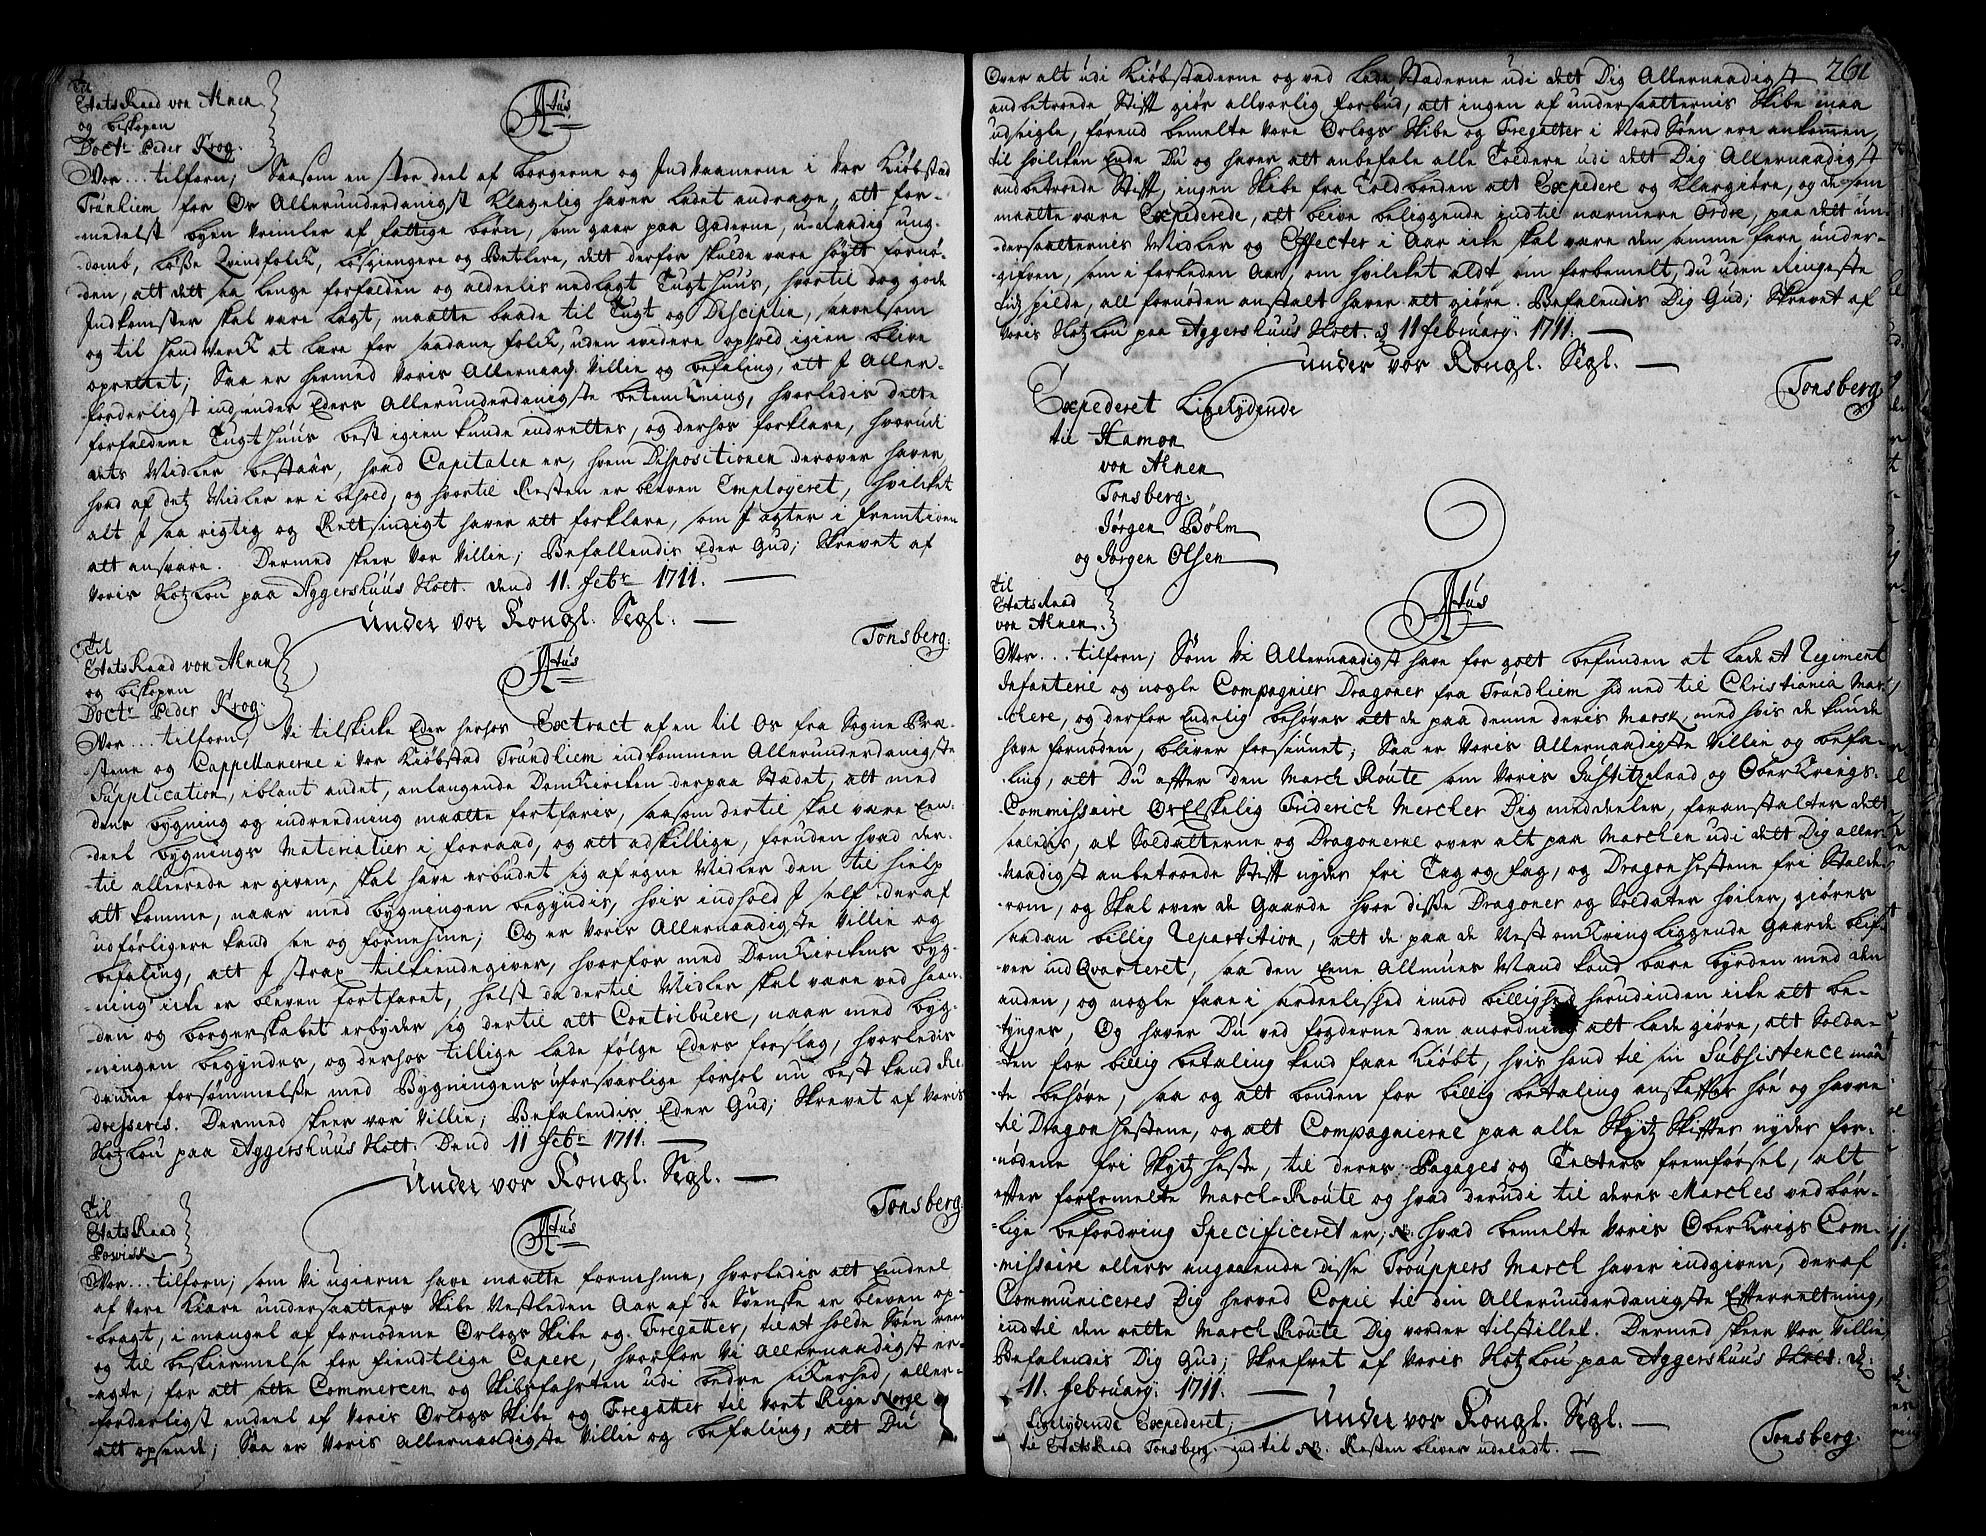 Til
Etats Raad von Ahnen
og biskopen
Doctr Peder Krog.
Atus
Vor... tilforn; Saasom en stor deel af borgerne og Indvaanerne i Vor Kiøbstad
Trùnhiem for Os Allerunderdanigst klagelig haver ladet andrage, att for-
-medelst byen vrimler af fattige børn, som gaar paa Gaderne, u-naadig ung-
-domb, løße Qvindfolck, løsgiengere og Betlere, dett derfor skulde være høyt fornø-
den, att dett saa lenge forfalden og aldeelis nedlagt Tugt Huus, hvortil dog gode
Indkomster skal være lagt, maatte baade til Tugt og Disciplin, saavelsom
og til Handverck at lære for saadane folck, uden videre ophold igien blive
oprettet; Saa er hermed Voris Allernaad: Villie og befaling, att I Aller-
forderligst indsender Eders Allerunderdanigste betenckning, hvorledis dette
forfaldene Tugt Huus best igien kunde indrettes, og derhos forklare, hvorudi
dets Midler bestaar, hvad Capitalen er, hvem Dispositionen derover haver,
hvad af detz Midler er i behold, og hvortil Resten er bleven Employeret, hvilcket
alt I saa rigtig og Rettsindigt haver att forklare, som I agter i fremtiden
att ansvare. Dermed skeer Vor Villie; Befallendis Eder Gud; Skrevet af
Voris Slotzlou paa Aggershuus Slott. Dend 11. febr 1711.
Under vor Kongl. Segl.
Tonsberg.
Til
Etats Raad von Ahnen
og biskopen
Doctr Peder Krog.
Atus
Vor... tilforn, Vi tilskicke Eder herhos Extract af en til Os fra Sogne Præ-
-stene og Cappellanerne i vor Kiøbstad Trundhiem indkommen Allerunderdanigste
Supplication, iblant andet, anlangende DomKircken derpaa Stædet, att med
dens bygning og indreedning maatte fortfaris, saasom dertil skal være Een-
-deel bygnings Materialier i forraad, og att adskillige, foruden hvad der-
til allereede er given, skal have erbudet sig af egne Midler den til hielp
att komme, naar med bygningen begyndis, hvis indhold I self deraf
udførligere kand see og fornehme; Og er Voris Allernaadigste Villie og
befaling, att I strax tilkiendegiver, hvorfor med DomKirckens byg-
-ning icke er bleven fortfaret, helst da dertil Midler skal være ved haan-
den og borgerskabet erbyder sig dertil att Contribuere, naar med byg-
-ningen begyndes, og derhos tillige lade følge Eders forslag, hvorledis
denne forsømmelse med Bygningens uforsvarlige forhol nu best kand Re-
dresseris. Dermed skeer vor Villie; Befalendis Eder Gud; Skrevet af Voris
Slotzlou paa Aggershuus Slott. Dend 11 febr 1711.
Under vor Kongl. Segl.
Tonsberg.
Til
Etats Raad
Powisk.
Atus
Vor... tilforn; som Vi ugierne have maatte fornehme, hvorledis att Eendeel
af Vore Kiære undersaatters Skibe Nestleden Aar af de Svenske er bleven op-
-bragt, i mangel af fornødene Orlogs Skibe og Fregatter, til at holde Søen reen
og til beskiermelse for fiendtlige Capere, hvorfor Vi Allernaadigst er-
agte, for att sætte Commercen og Skibsfahrten udi bedre sickerhed, aller-
forderligst endeel af Voris Orlogs Skibe og Fregatter til Vort Rige Norge
att opsende; Saa er Voris Allernaadigste Villie og befaling, att Du
261
Over alt udi Kiøbstæderne og ved lade Stæderne udi dett Dig Allernaadigst
anbetroede Stift giør allvorlig forbud, att ingen af undersaatternis Skibe maa
udseigle, førend bemelte Vore Orlogs Skibe og Fregatter i Nord Søen ere ankommen,
til hvilcken Ende Du og haver att anbefale alle Toldere udi dett Dig Allernaadigst
anbetroede Stift, ingen Skibe fra Toldboeden att Expedere og klargiøre, og de som
maatte være Expederede, att blive beliggende indtil nærmere Ordre, paa dett un-
-dersaatternes Midler og Effecter i Aar icke skal være den samme fare under-
-gifven, som i forleden Aar, om hvilcket aldt om forbemelt, du uden ringeste
tids spilde, all fornøden anstalt haver att giøre. Befalendis Dig Gud; Skrevet af
Voris Slotzlou paa Aggershuus Slott. d 11 februarij. 1711.
Under vor Kongl. Segl.
Tonsberg.
Expederet Ligelydende
til Stamon
von Ahnen
Tonsberg.
Jørgen Bølm
og Jørgen Olsen
Til
Etats Raad
von Ahnen.
Atus
Vor... tilforn; Som Vi Allernaadigst have for gott befunden at lade et Regiment
Infanterie og nogle Compagnier Dragoner fra Trundhiem hid ned til Christiania Mar-
-chere, og derfor Endelig behøves att de paa denne deris Marsk, med hvis de kunde
have fornøden, bliver forsiunet; Saa er Voris Allernaadigste Villie og befa-
-ling, att Du efter den March Route som Voris Justitz Raad og Ober Krigs-
Commissaire Os Elskelig Friderich Mercker Dig meddeeler, foranstalter dett
saaledis, at Soldatterne og Dragonerne over alt paa Marchen udi dett Dig aller-
naadigst anbetroede Stift nyder fri Tag og fag, og Dragon Hestene fri Stalde-
-rom, og Skal over de Gaarde hvor disse Dragoner og Soldater hviler, giøres
saadan billig Repartition, att de paa de Nest omkring liggende Gaarde blif-
ver ind Qvarteret, saa den Eene Allmues Mand kand bære byrden med den
anden, og nogle faae i særdeelished imod billighed herudinden icke att be-
tynges, Og haver Du ved fogderne den anordning att lade giøre, att Solda-
-ten for billig betaling kand faae Kiøbt, hvis hand til sin Subsistence maa
-te behøve, saa og att bonden for billig betaling anskaffer Høe og havre
til Dragon Hestene, og att Compagnierne paa alle Skydtz Skifter nyder for-
-nødene fri Skydtz Heste, til deres Bagages og Telters fremførsel, alt
efter forbemelte March-Route og hvad derudi til deres Marches vedbør-
-lige befordring Specificeret er; NB. hvad bemelte Voris Ober Krigs Com-
-missaire ellers angaaende disse Trouppers March haver indgiven, deraf
Communiceres Dig herved Copie til din Allerunderdanigste Efterrettning,
indtil den rette March Route Dig vorder tilstillet. Dermed skeer Vor Villie,
Befalendis Dig Gud; Skrefvet af Voris Slotzlou paa Aggershuus Slott. d.
11. februarij. 1711.
Under vor Kongl. Segl.
Ligelydende Expederet,
til Etats Raad Tonsberg. indtil NB. Resten bliver udeladt.
Tonsberg.